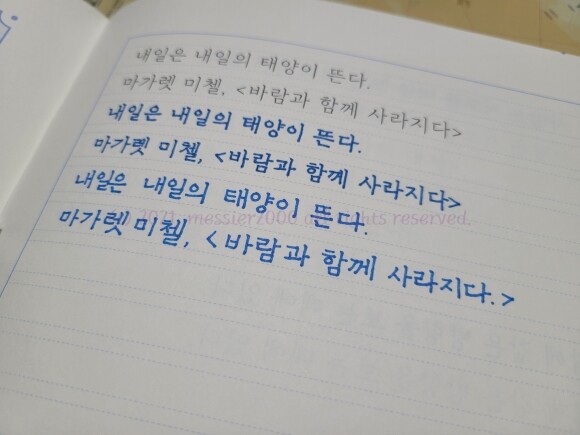 내일은 내일의 태양이 뜬다.
마가렛 미첼, <바람과 함께 사라지다>
내일은 내일의 태양이 뜬다.
마가렛 미첼, <바람과 함께 사라지다>
내일은 내일의 태양이 뜬다.
ⓒ 2021. messier7000 all rights reserved.
마가렛 미첼, <바람과 함께 사라지다.>